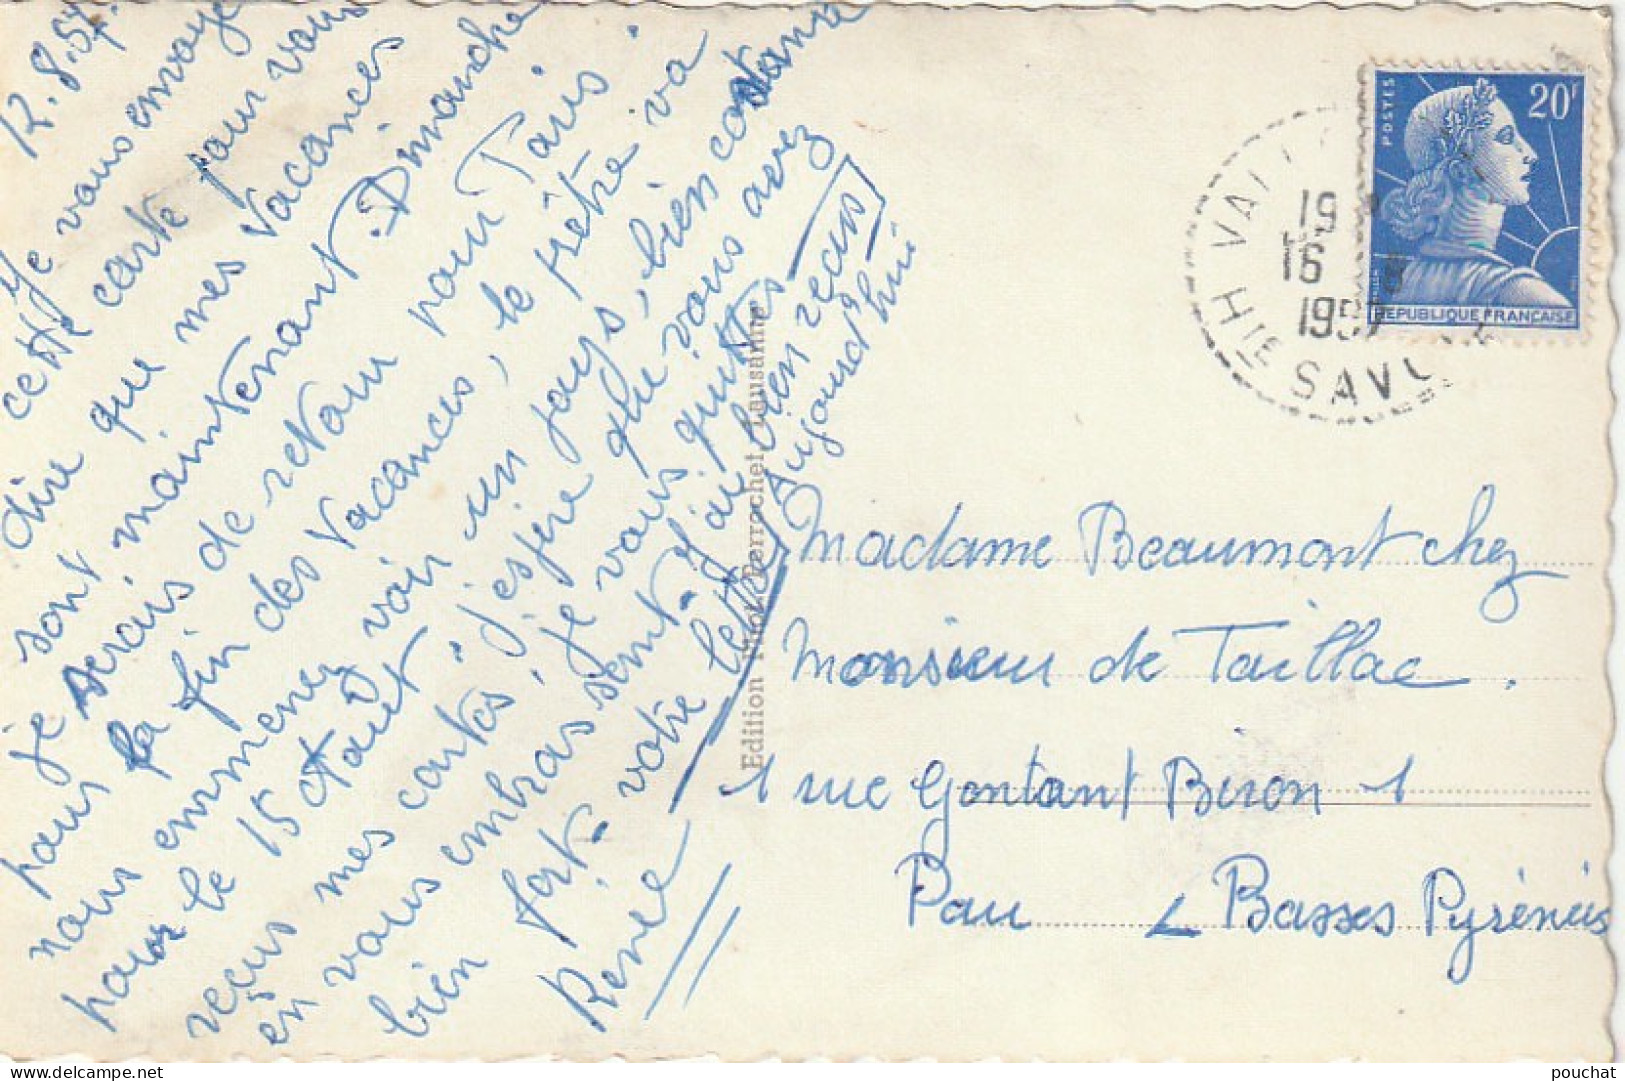 12.8.57.
Je vous envoye
cette carte pour vous
dire que mes vacances
sont maintenant Dimanche
je serais de retour pour Paris
pour la fin des vacances, le prêtre va
nous emmener voir un pays, bien
pour le 15 Août, j'espère que vous avez
recus mes cartes, je vous quittes
en vous embrassent
bien fort.
René
J'ai bien recus
votre lettre Aujourd'hui
Edition Perrochet Lausanne
POSTES
20F
REPUBLIQUE FRANÇAISE
19
16 8
1957
HIE SAVOIE
Madame Beaumont chez
Monsieur de Taillac.
1 rue Gontant Biron 1
Pau Basses Pyrénéis
pouchat